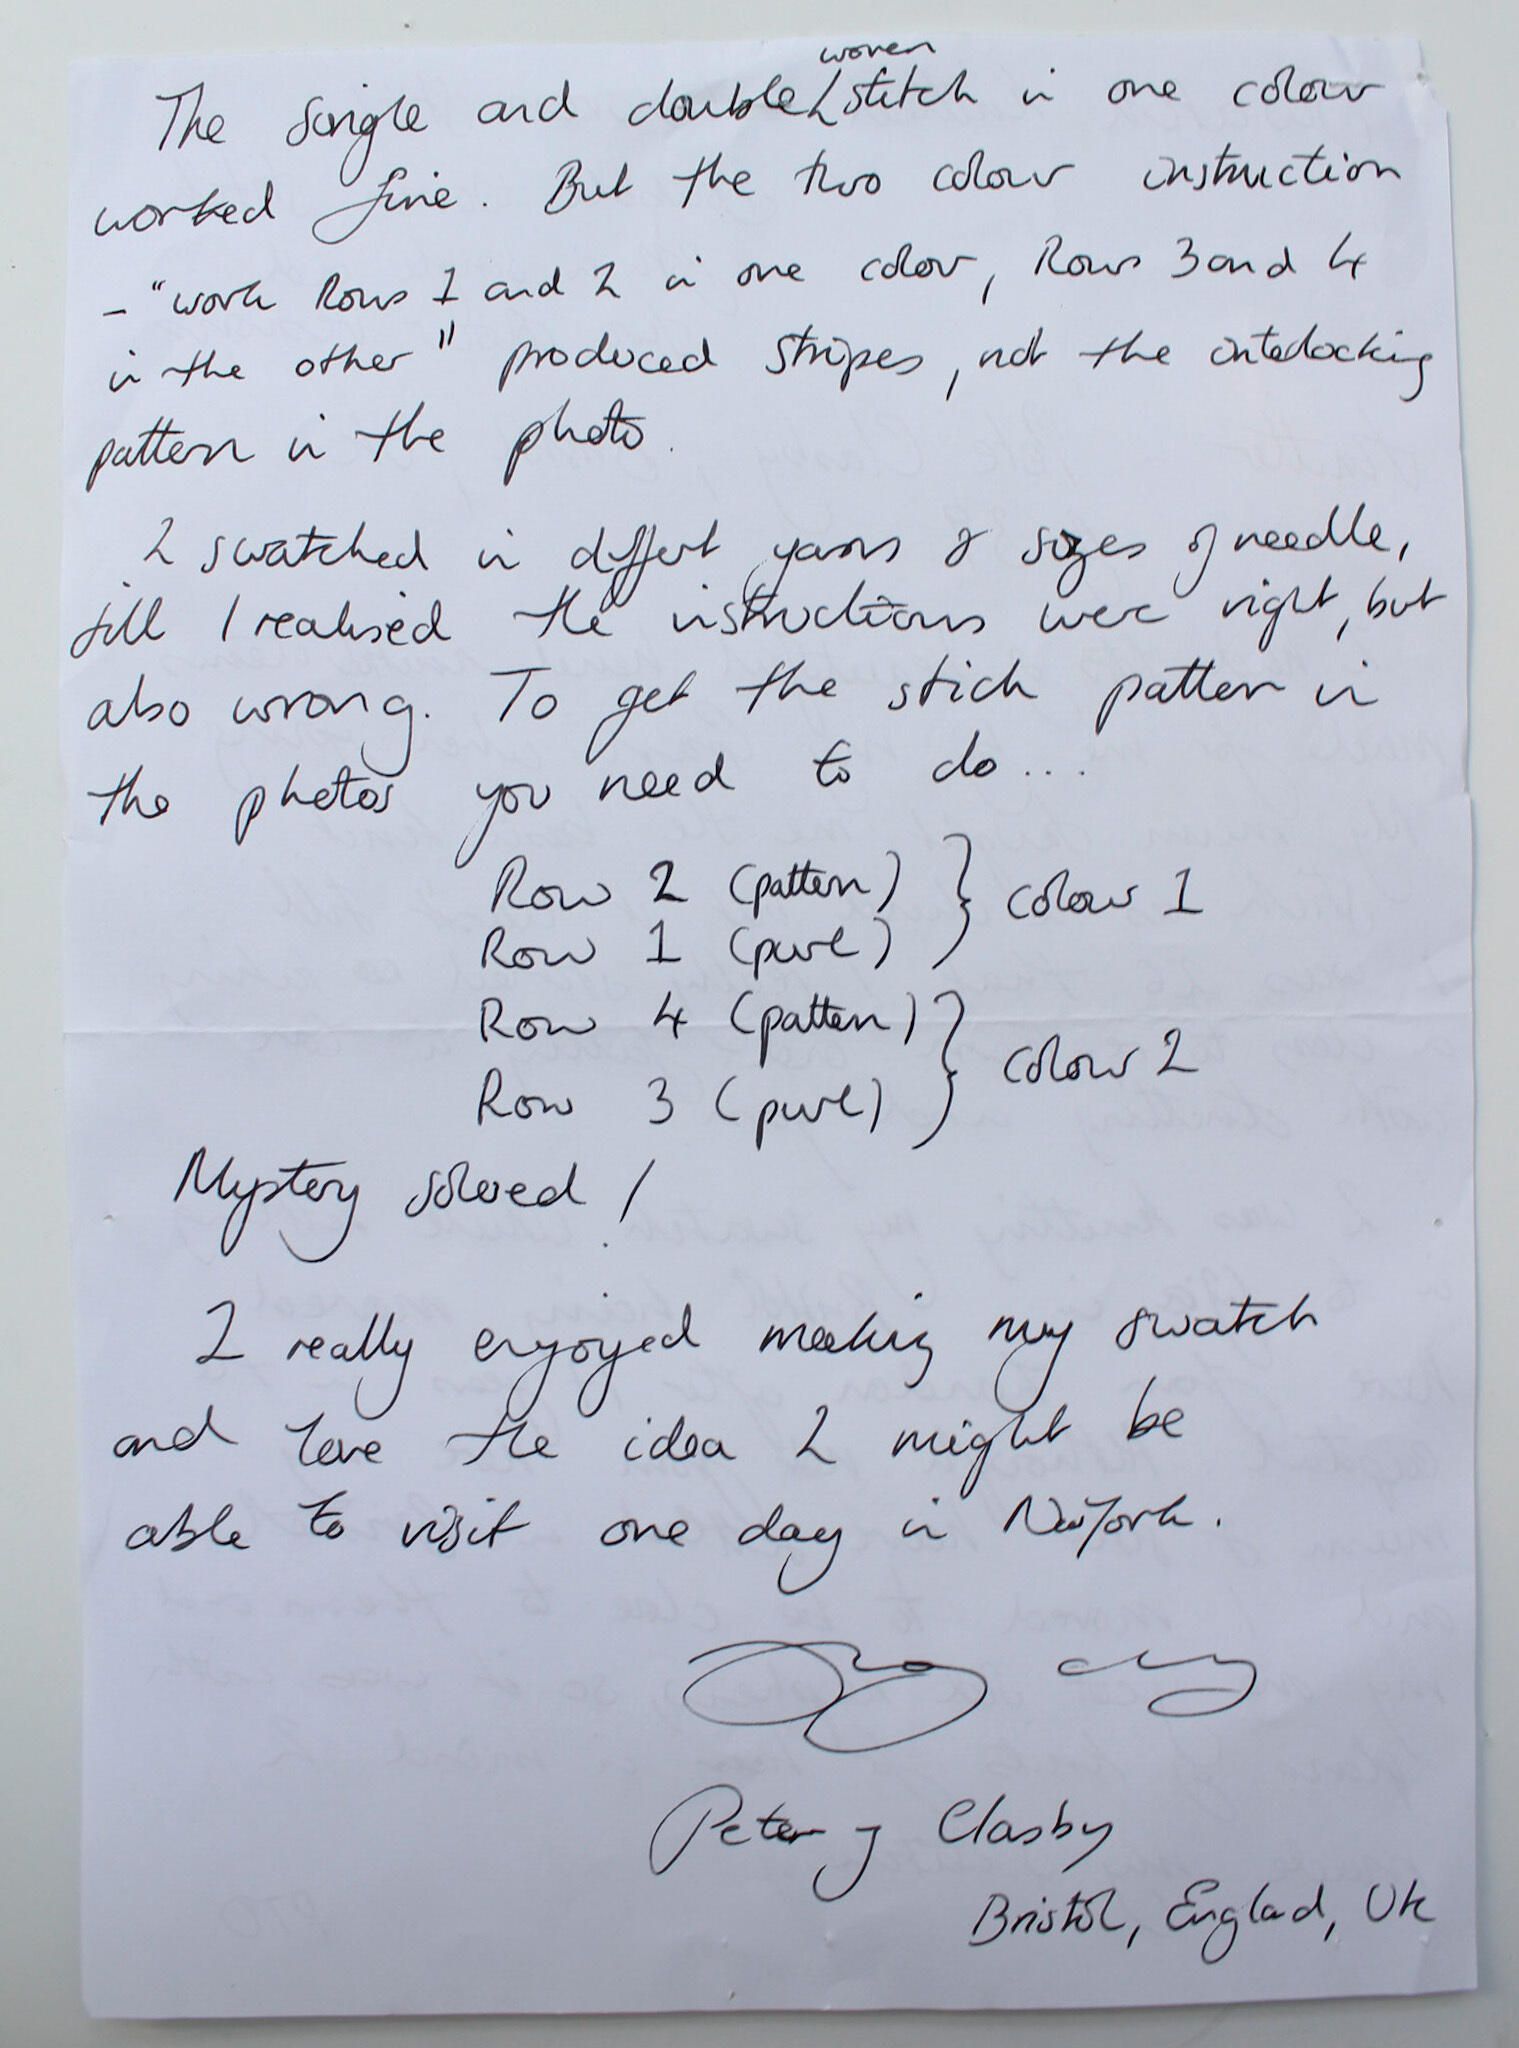 woven
The single and double stitch in one colour
worked fine. But the two colour instruction
- "work Rows 1 and 2 in one colour, Rows 3 and 4
in the other" produced stripes, not the interlocking
pattern in the photo.
I swatched in diffent yarns & sizes of needle,
till I realised the instructions were right, but
also wrong. To get the stich pattern in
the photos you need to do...
Row 2 (pattern) } colour 1
Row 1 (purl)
Row 4 (pattern) } colour 2
Row 3 (purl)
Mystery solved!
I really enjoyed making my swatch
and love the idea I might be
able to visit one day in New York.
Peter J Clasby
Bristol, England, UK